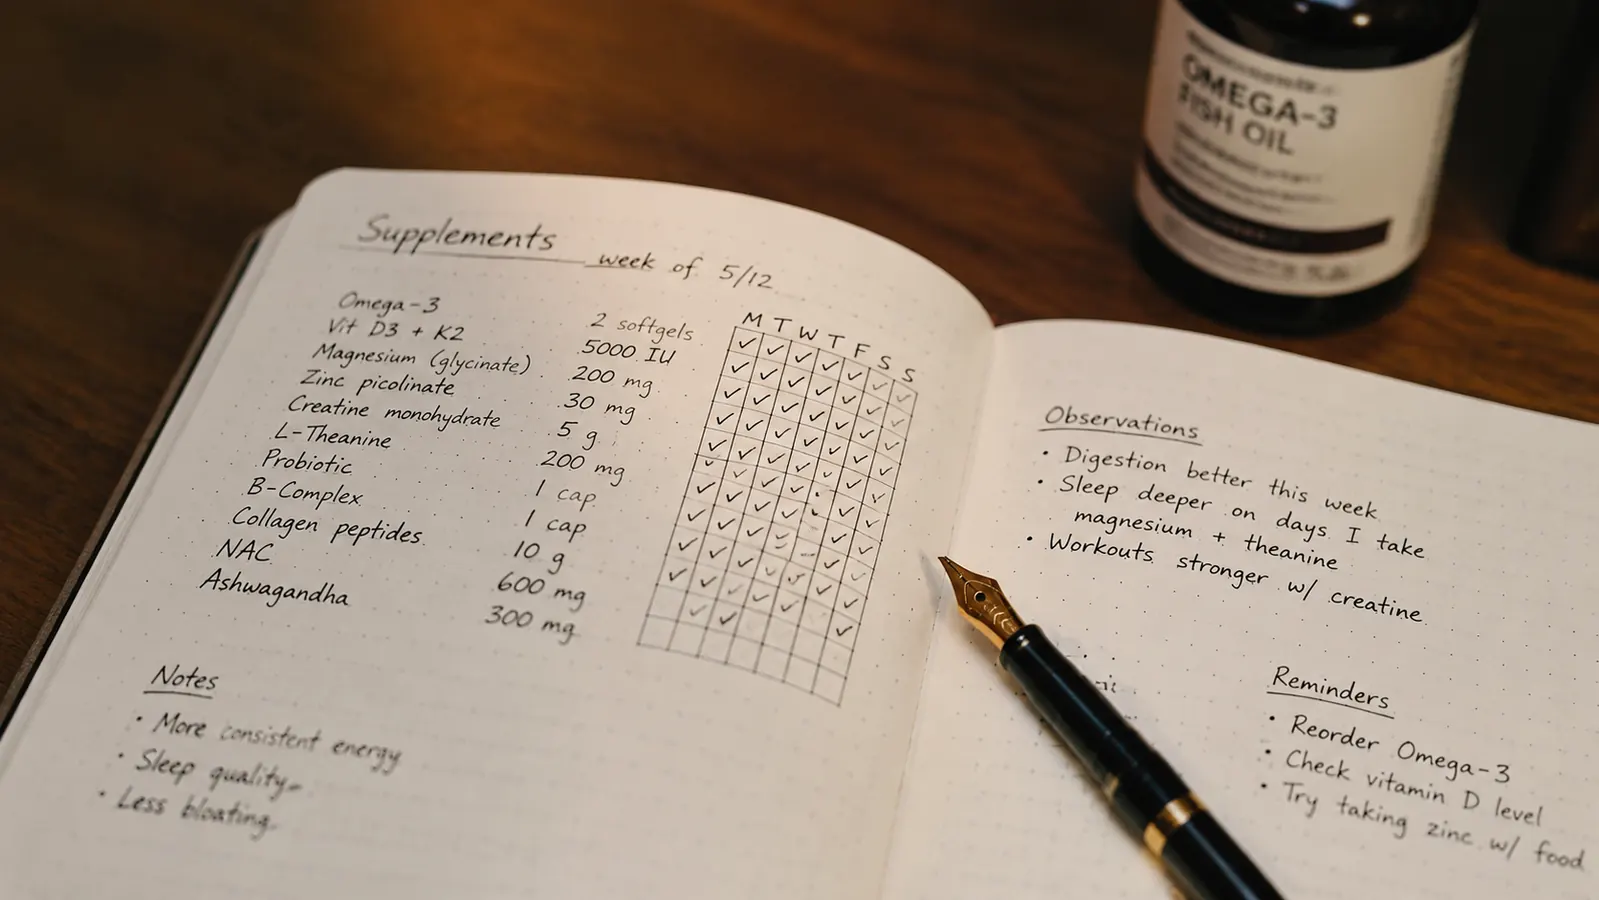 Supplements week of 5/12
M T W T F S S
Omega-3 2 softgels
Vit D3 + K2 5000 IU
Magnesium (glycinate) 200 mg
Zinc picolinate 30 mg
Creatine monohydrate 5 g
L-Theanine 200 mg
Probiotic 1 cap
B-Complex 1 cap
Collagen peptides 10 g
NAC 600 mg
Ashwagandha 300 mg
Notes
• More consistent energy
• Sleep quality
• Less bloating
Observations
• Digestion better this week
• Sleep deeper on days I take
magnesium + theanine
• Workouts stronger w/ creatine
Reminders
• Reorder Omega-3
• Check vitamin D level
• Try taking zinc w/ food
OMEGA-3
FISH OIL